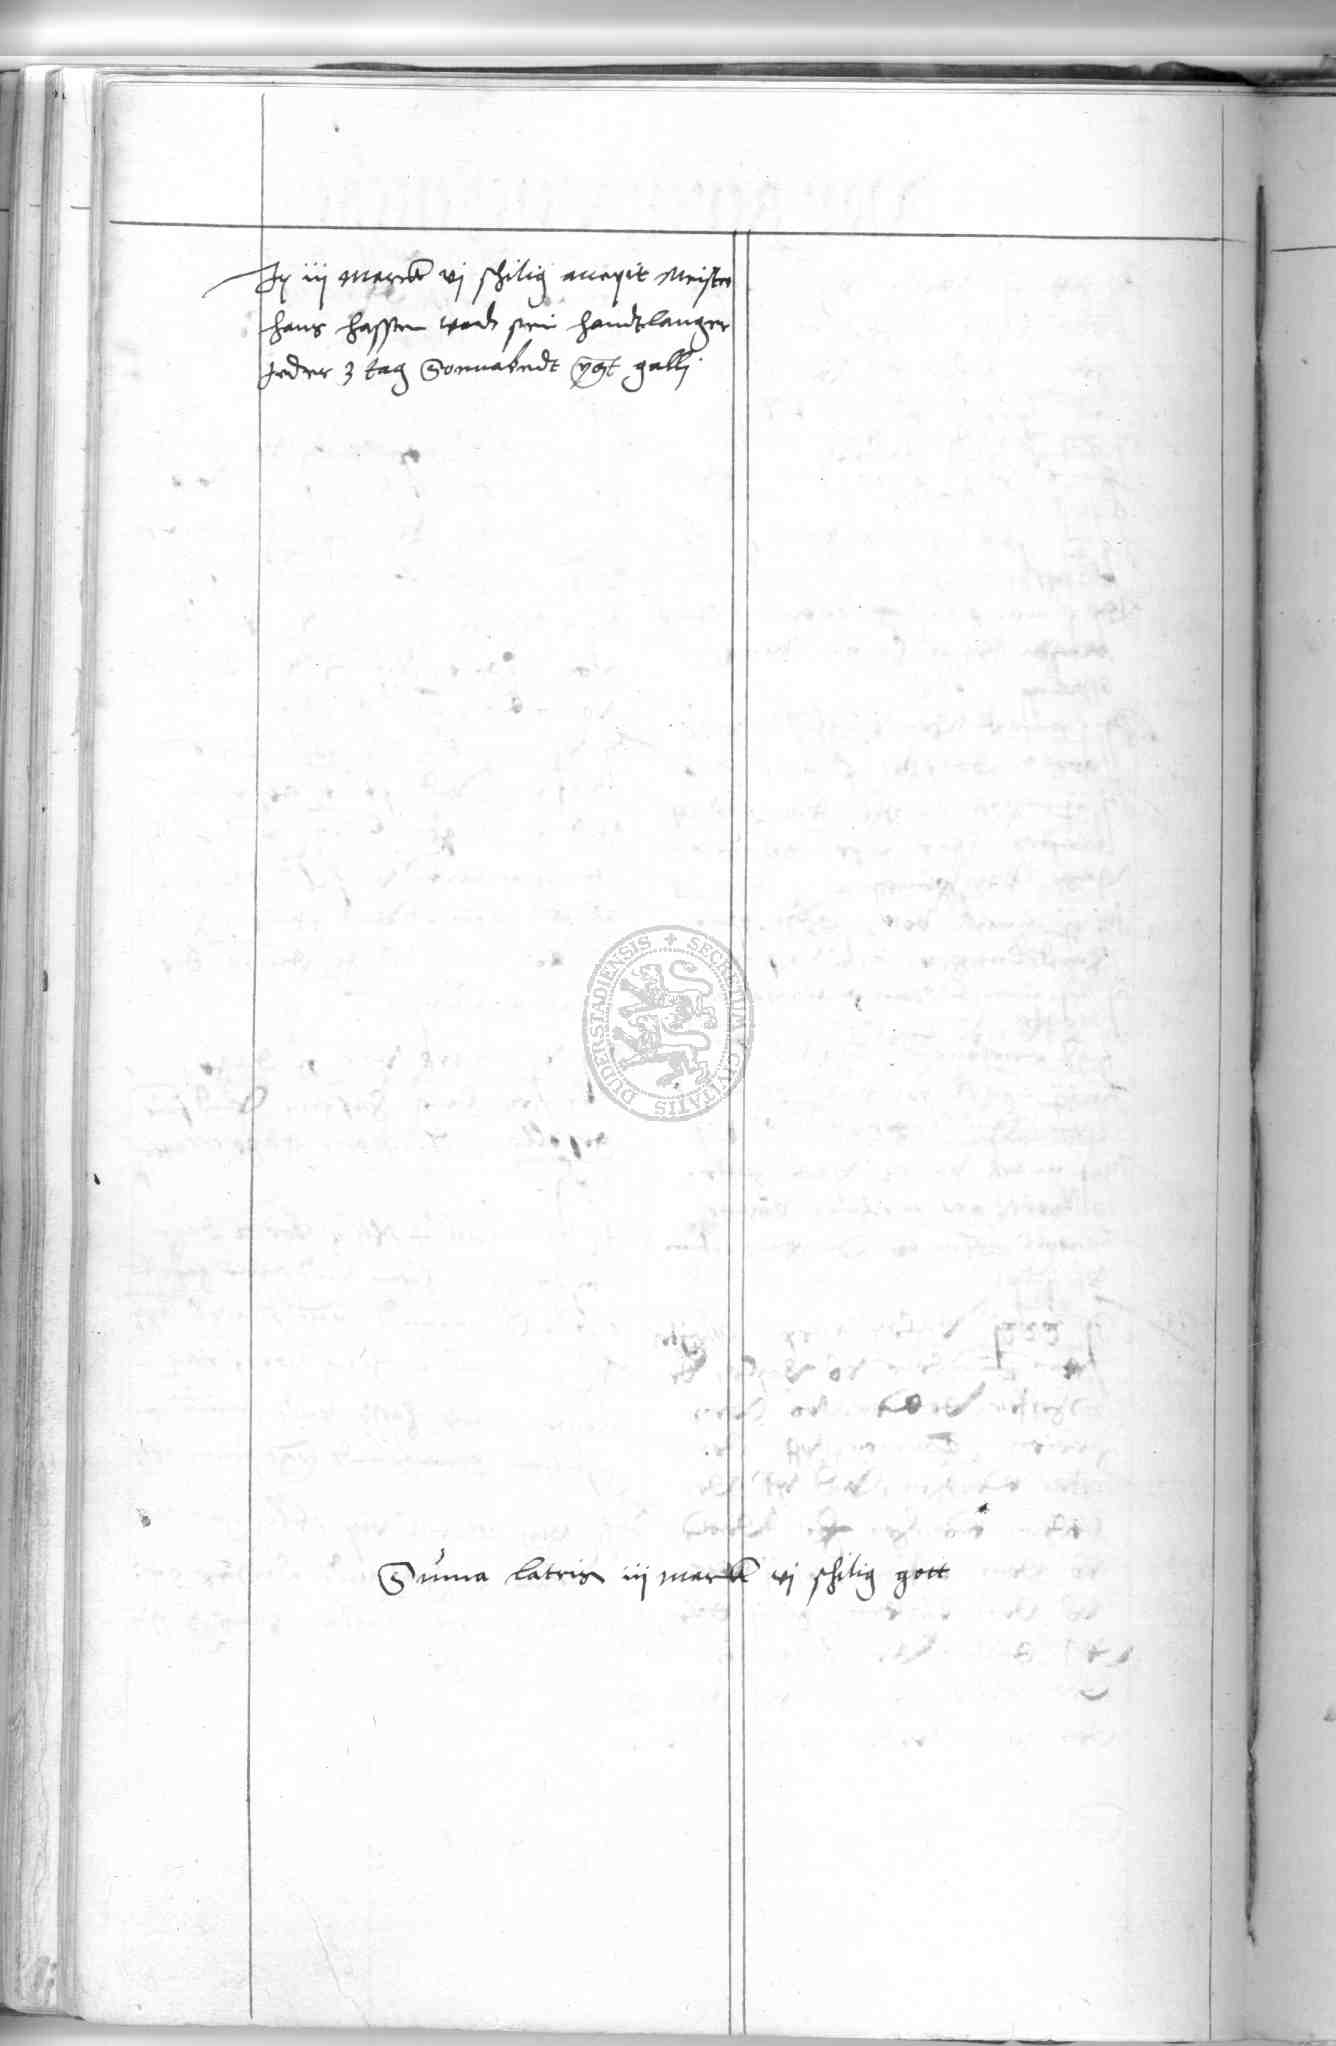 It iij marck vj schilig accepit Meister
hans hassen vnd sein handtlanger
Jeder 3 tag Sonnabedt post galli
SECRETUM CIVITATIS DUDERSTADIENSIS
Suma lateris iij marck vj schilig gott